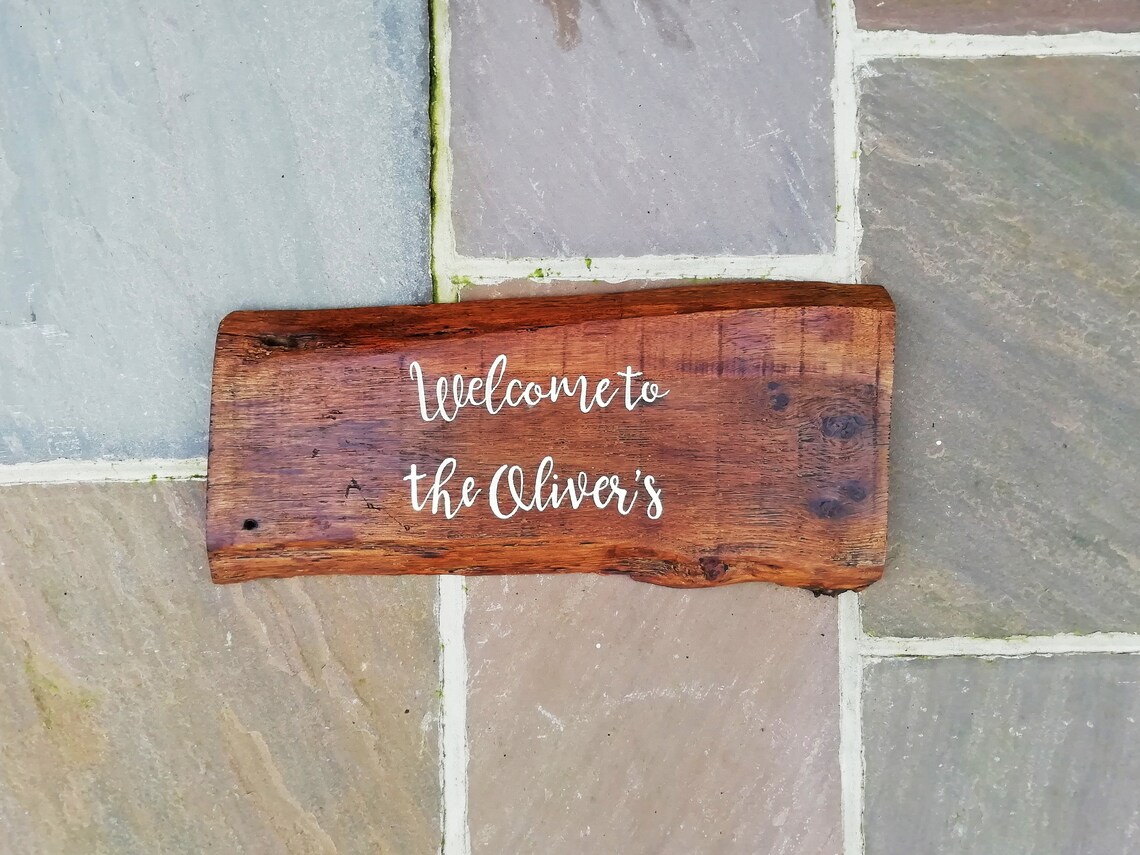 Welcome to
the Oliver's